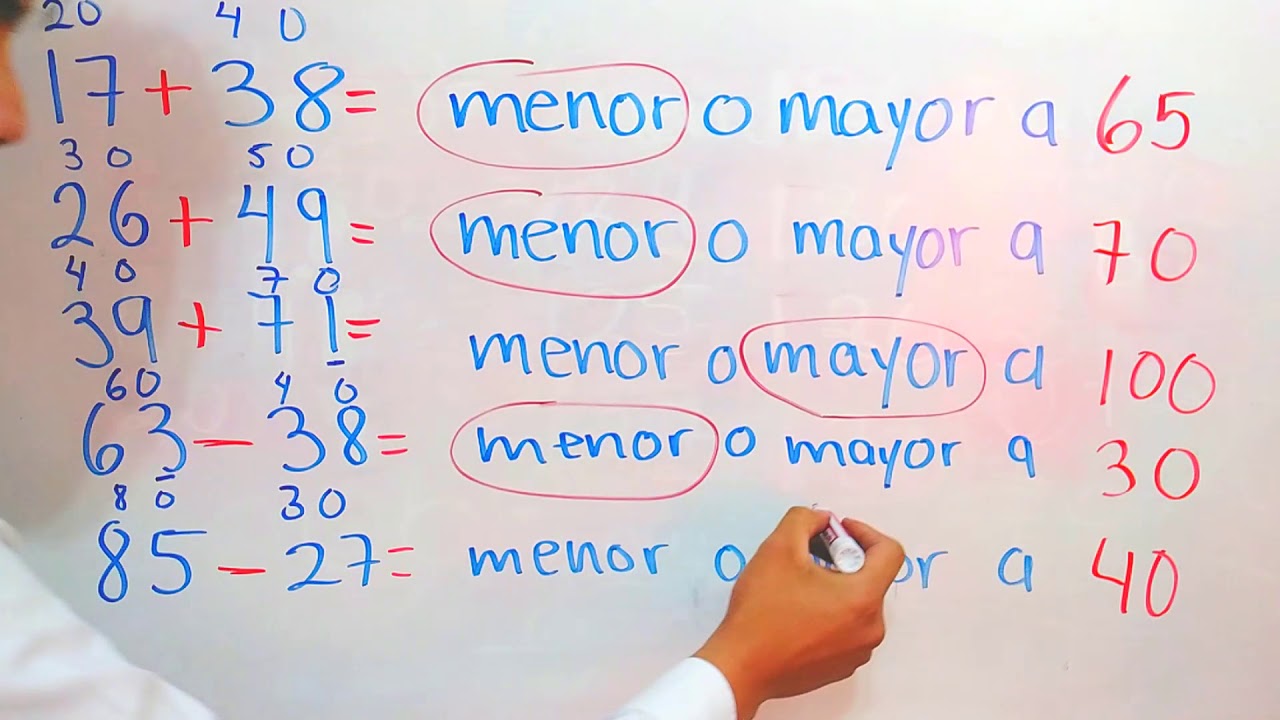 20 40
17 + 38 = menor o mayor a 65
30 50
26 + 49 = menor o mayor a 70
40 70
39 + 71 = menor o mayor a 100
60 40
63 - 38 = menor o mayor a 30
80 30
85 - 27 = menor o a 40